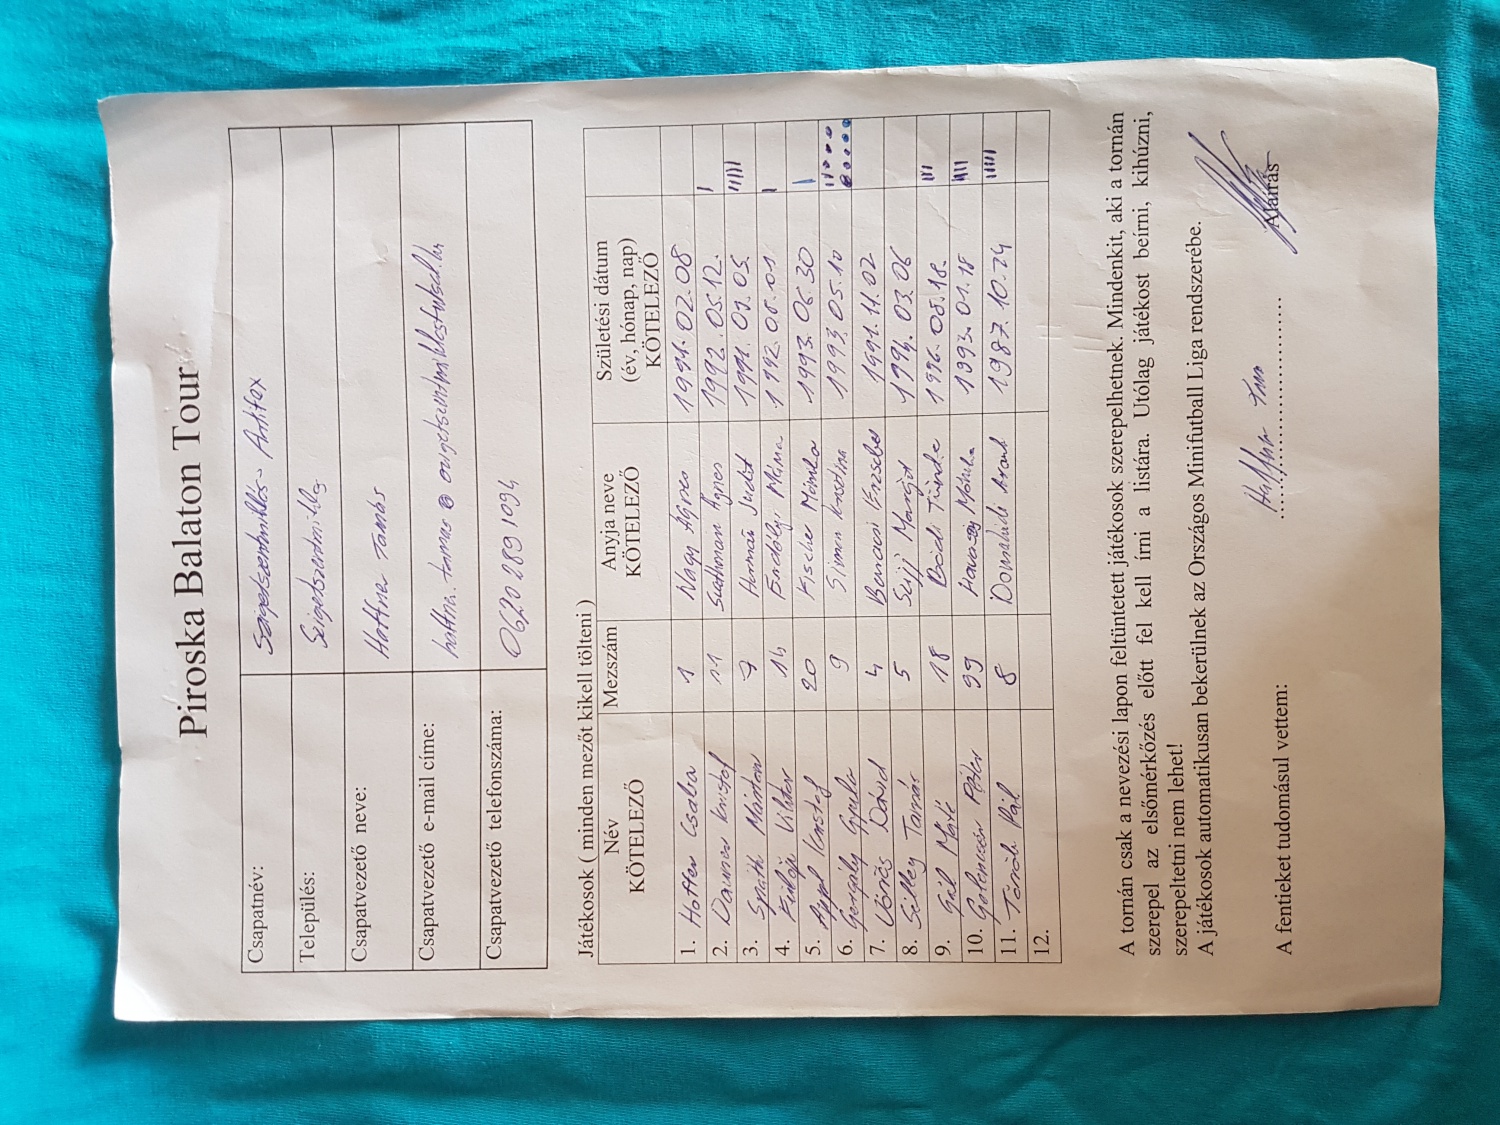 Piroska Balaton Tour
Csapatnév: Szigetszentmiklós - Antifox
Település: Szigetszentmiklós
Csapatvezető neve: Hattner Tamás
Csapatvezető e-mail címe:
Csapatvezető telefonszáma: 0620 289 1094
Játékosok ( minden mezőt kikell tölteni )
Név KÖTELEZŐ Mezszám Anyja neve KÖTELEZŐ Születési dátum (év, hónap, nap) KÖTELEZŐ
1. Csaba 1 Nagy Ágnes 1991.02.08
2. Kristóf 11 Ágnes 1992.05.12.
3. Späth Márton 7 Judit 1991.
4. Fülöp Viktor 14 Erdélyi Mária 1992.
5. Appel Kristóf 20 Fischer Mónika 1993.06.30
6. Gergely Gyula 9 Simon Krisztina 1993.05.10
7. Vörös Dávid 4 Erzsébet 1991.11.02
8. Tamás 5 Margit 1994.03.06
9. Gál Máté 18 Bódi Tünde 1996.05.18.
10. Péter 99 1993.01.18
11. Török Pál 8 1987.10.24
12.
A tornán csak a nevezési lapon feltüntetett játékosok szerepelhetnek. Mindenkit, aki a tornán
szerepel az elsőmérkőzés előtt fel kell írni a listára. Utólag játékost beírni, kihúzni,
szerepeltetni nem lehet!
A játékosok automatikusan bekerülnek az Országos Minifutball Liga rendszerébe.
A fentieket tudomásul vettem: Hattner Tamás
Aláírás